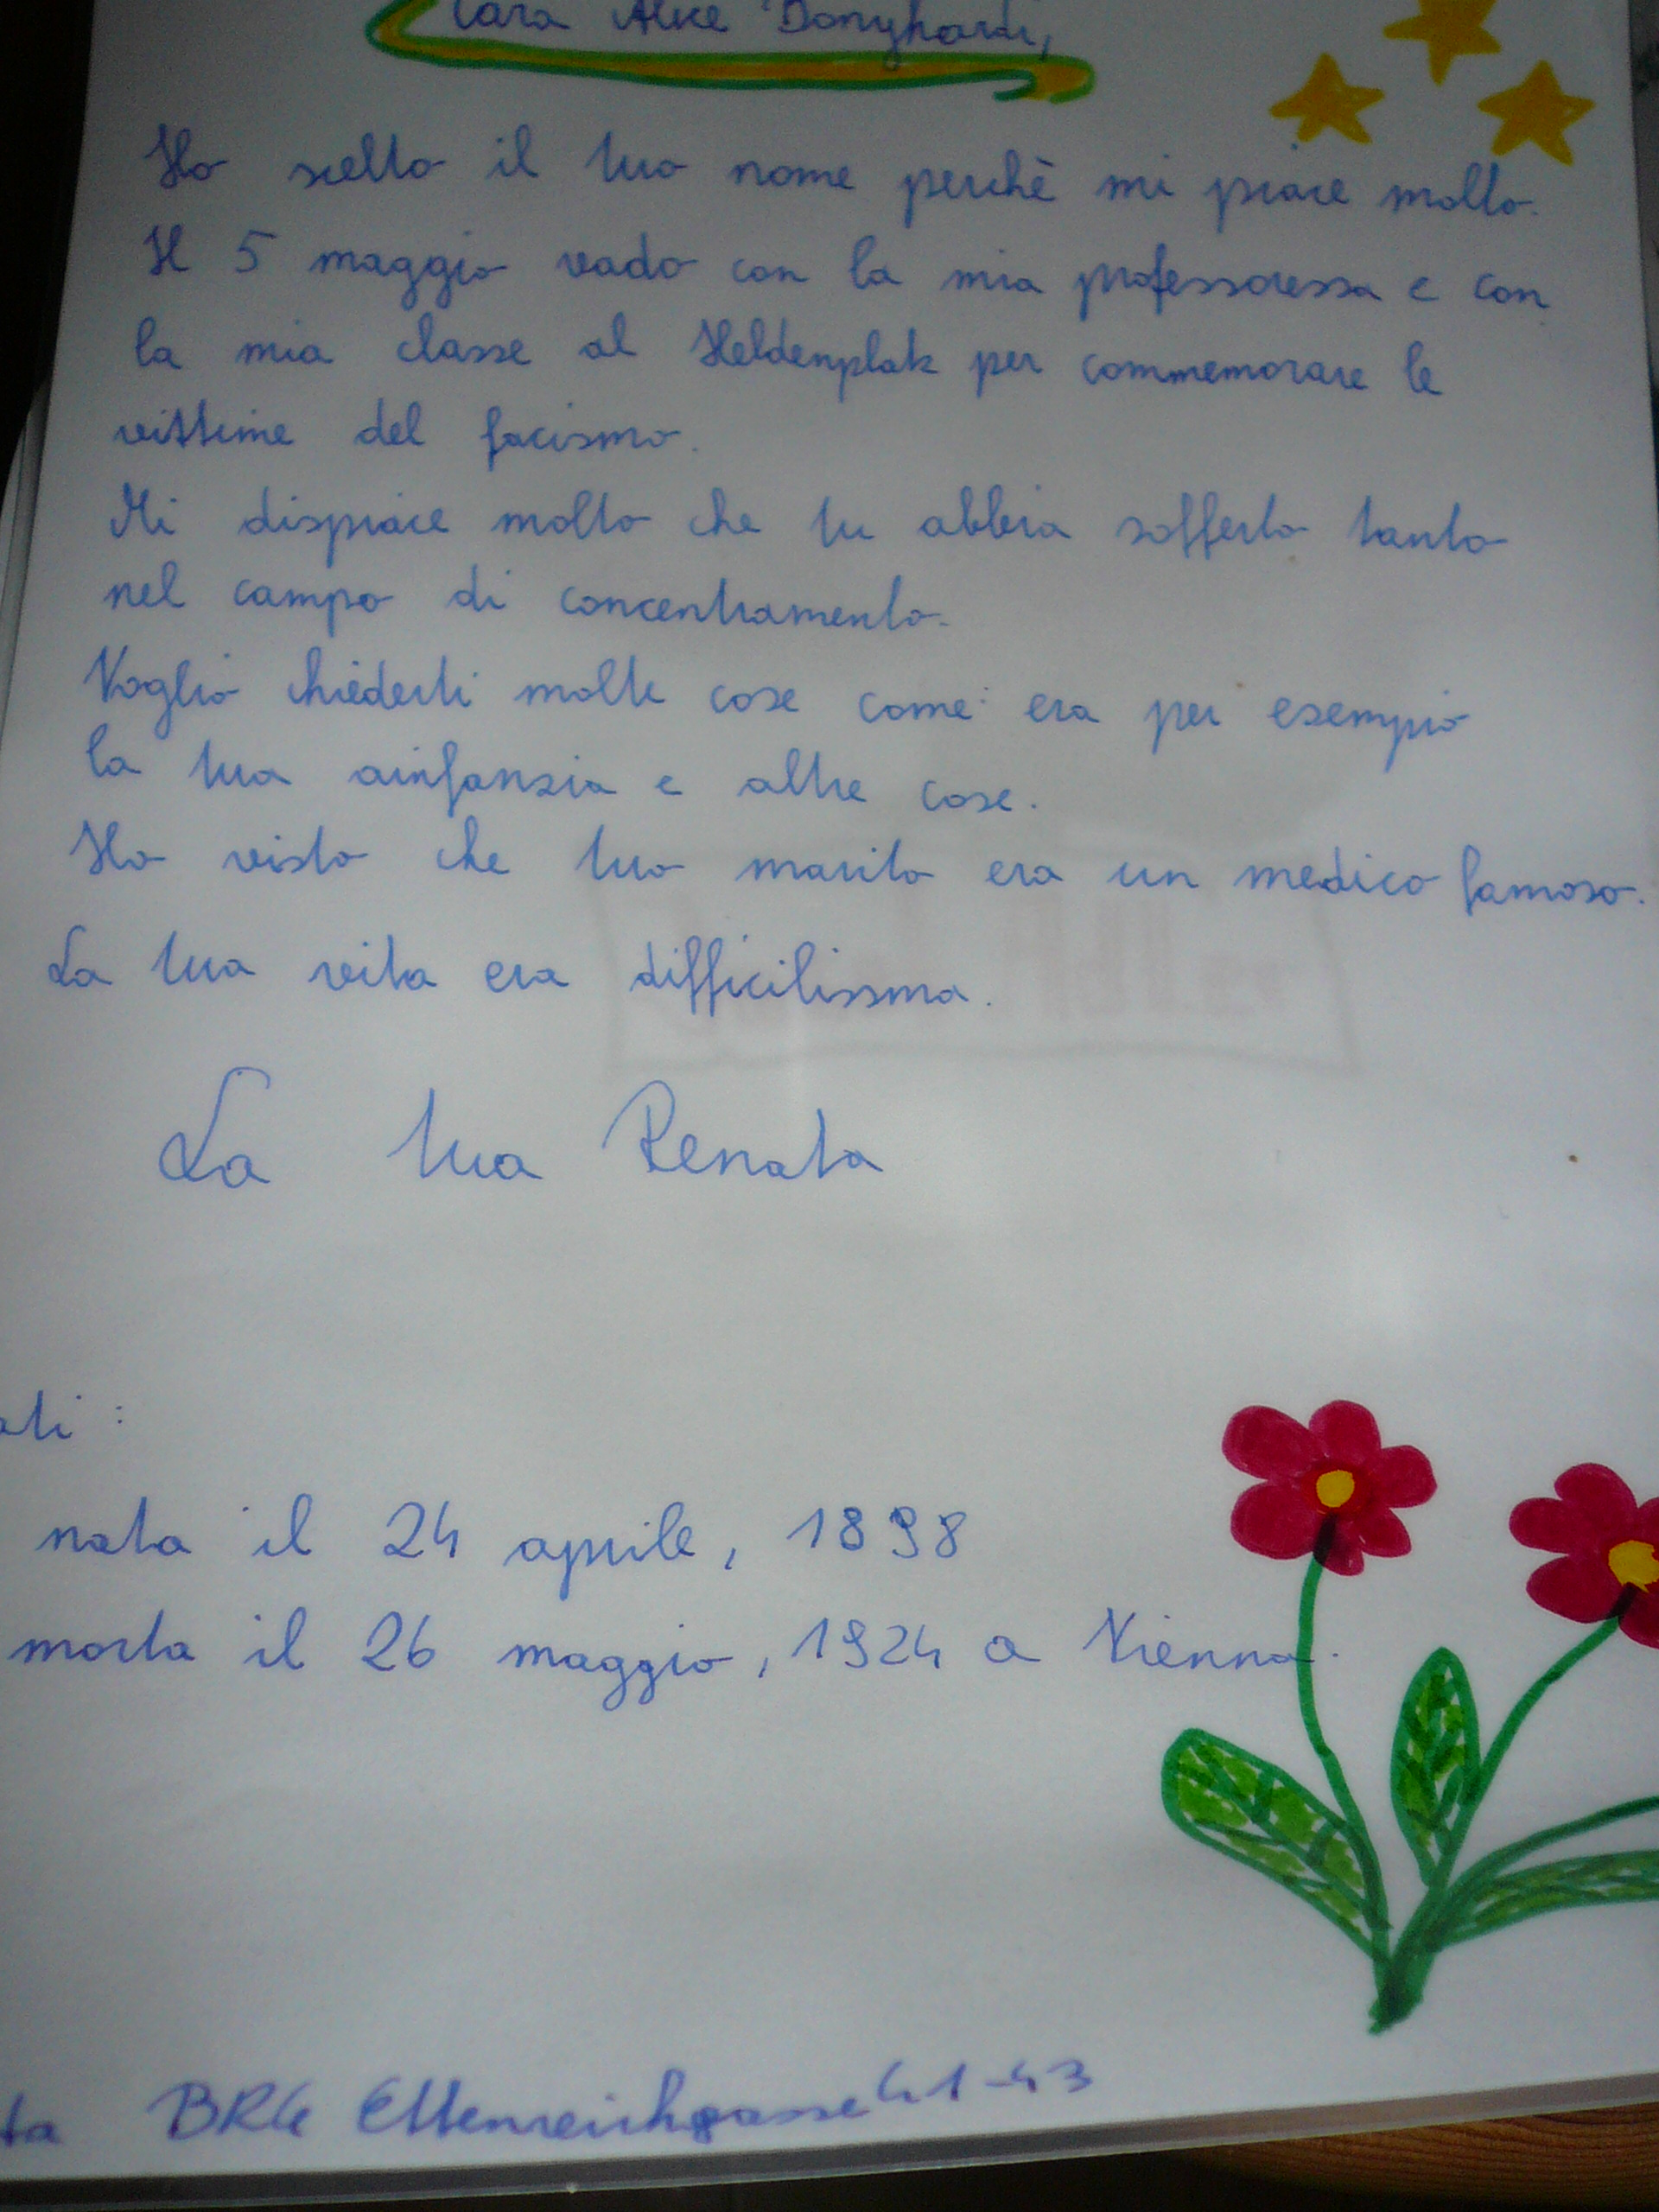 Cara Alice Donyhardi,
Ho scelto il tuo nome perchè mi piace molto.
Il 5 maggio vado con la mia professoressa e con
la mia classe al Heldenplatz per commemorare le
vittime del facismo.
Mi dispiace molto che tu abbia sofferto tanto
nel campo di concentramento.
Voglio chiederti molte cose come: era per esempio
la tua ainfanzia e altre cose.
Ho visto che tuo marito era un medico famoso.
La tua vita era difficilissma.
La tua Renata
ati :
nata il 24 aprile, 1898
morta il 26 maggio, 1924 a Vienna.
ta BRG Ettenreichgasse 41-43